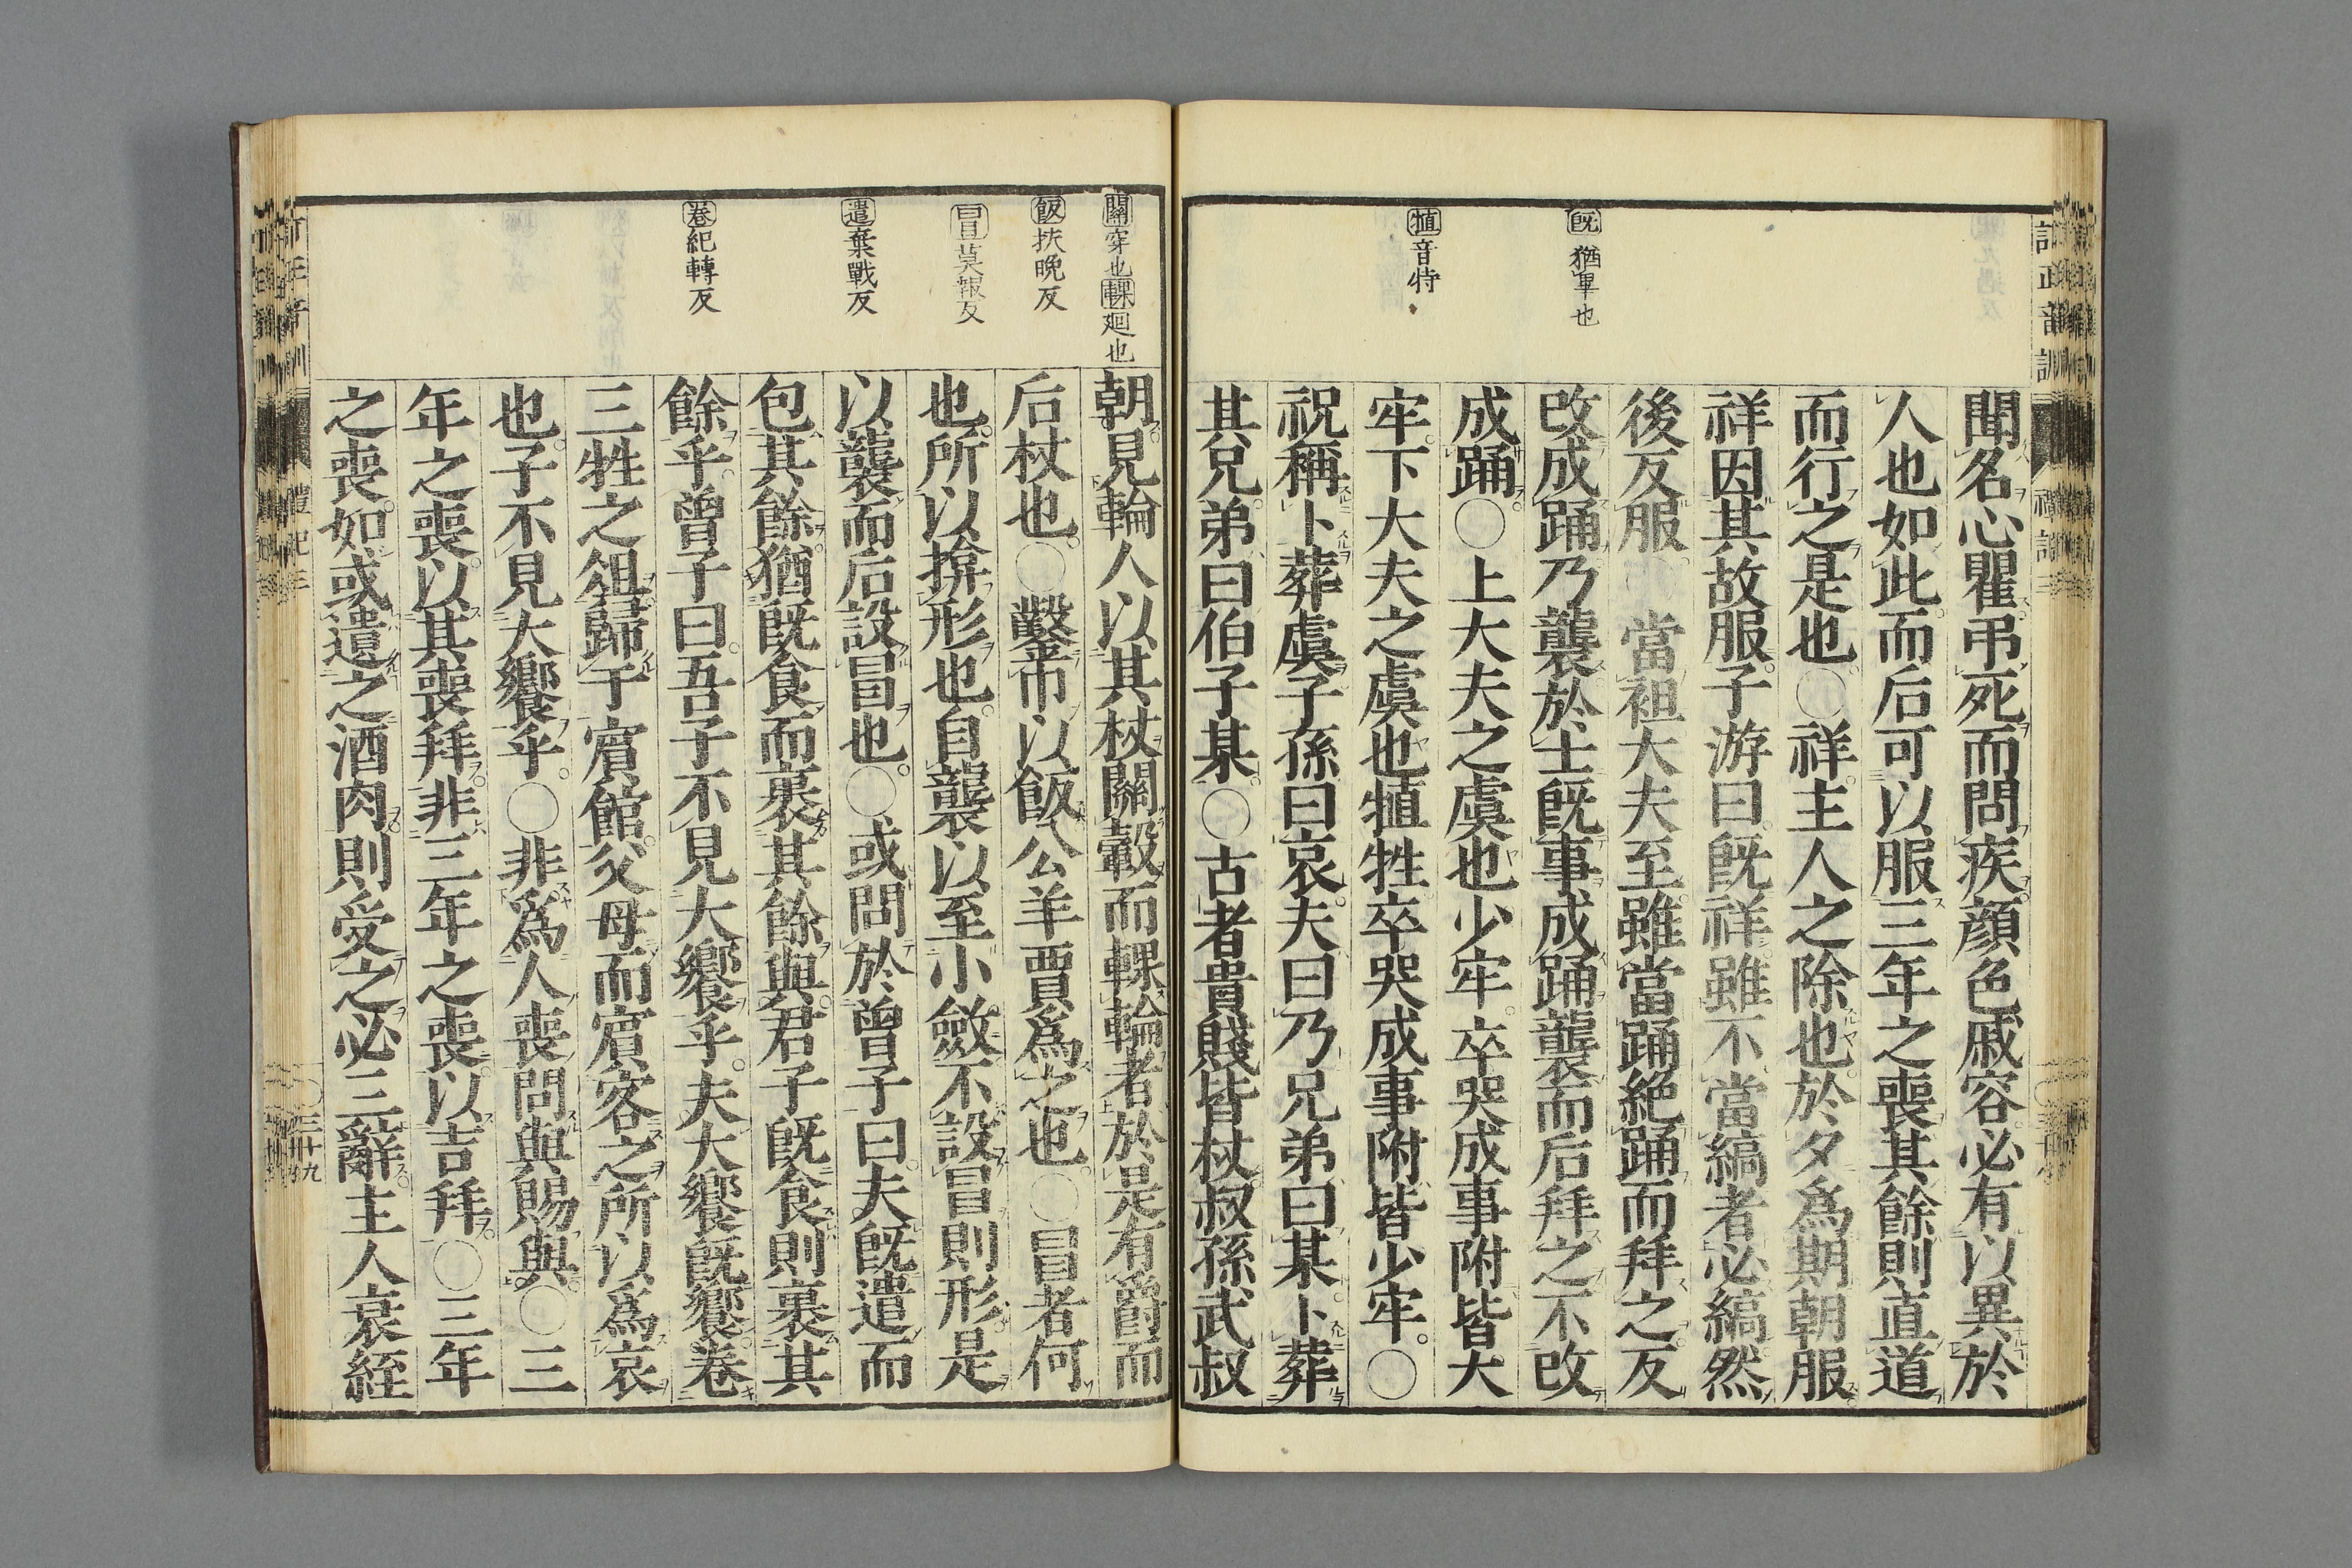 既 猶畢也
犆 音特
聞名心瞿弔死而問疾顔色戚容必有以異於
人也如此而后可以服三年之喪其餘則直道
而行之是也○祥主人之除也於夕為期朝服
祥因其故服子游曰既祥雖不當縞者必縞然
後反服 當袒大夫至雖當踊絶踊而拜之反
改成踊乃襲於士既事成踊襲而后拜之不改
成踊○上大夫之虞也少牢卒哭成事附皆大
牢下大夫之虞也犆牲卒哭成事附皆少牢○
祝稱卜葬虞子孫曰哀夫曰乃兄弟曰某卜葬
其兄弟曰伯子某○古者貴賤皆杖叔孫武叔
關 穿也 輠 廻也
飯 扶晩反
冒 莫報反
遣 棄戰反
卷 紀轉反
朝見輪人以其杖關轂而輠輪者於是有爵而
后杖也○鑿巾以飯公羊賈為之也○冒者何
也所以揜形也自襲以至小斂不設冒則形是
以襲而后設冒也○或問於曾子曰夫既遣而
包其餘猶既食而裹其餘與君子既食則裹其
餘乎曾子曰吾子不見大饗乎夫大饗既饗卷
三牲之俎歸于賓館父母而賓客之所以為哀
也子不見大饗乎○非為人喪問與賜與○三
年之喪以其喪拜非三年之喪以吉拜○三年
之喪如或遺之酒肉則受之必三辭主人衰絰
訂正音訓
禮記三
三十九